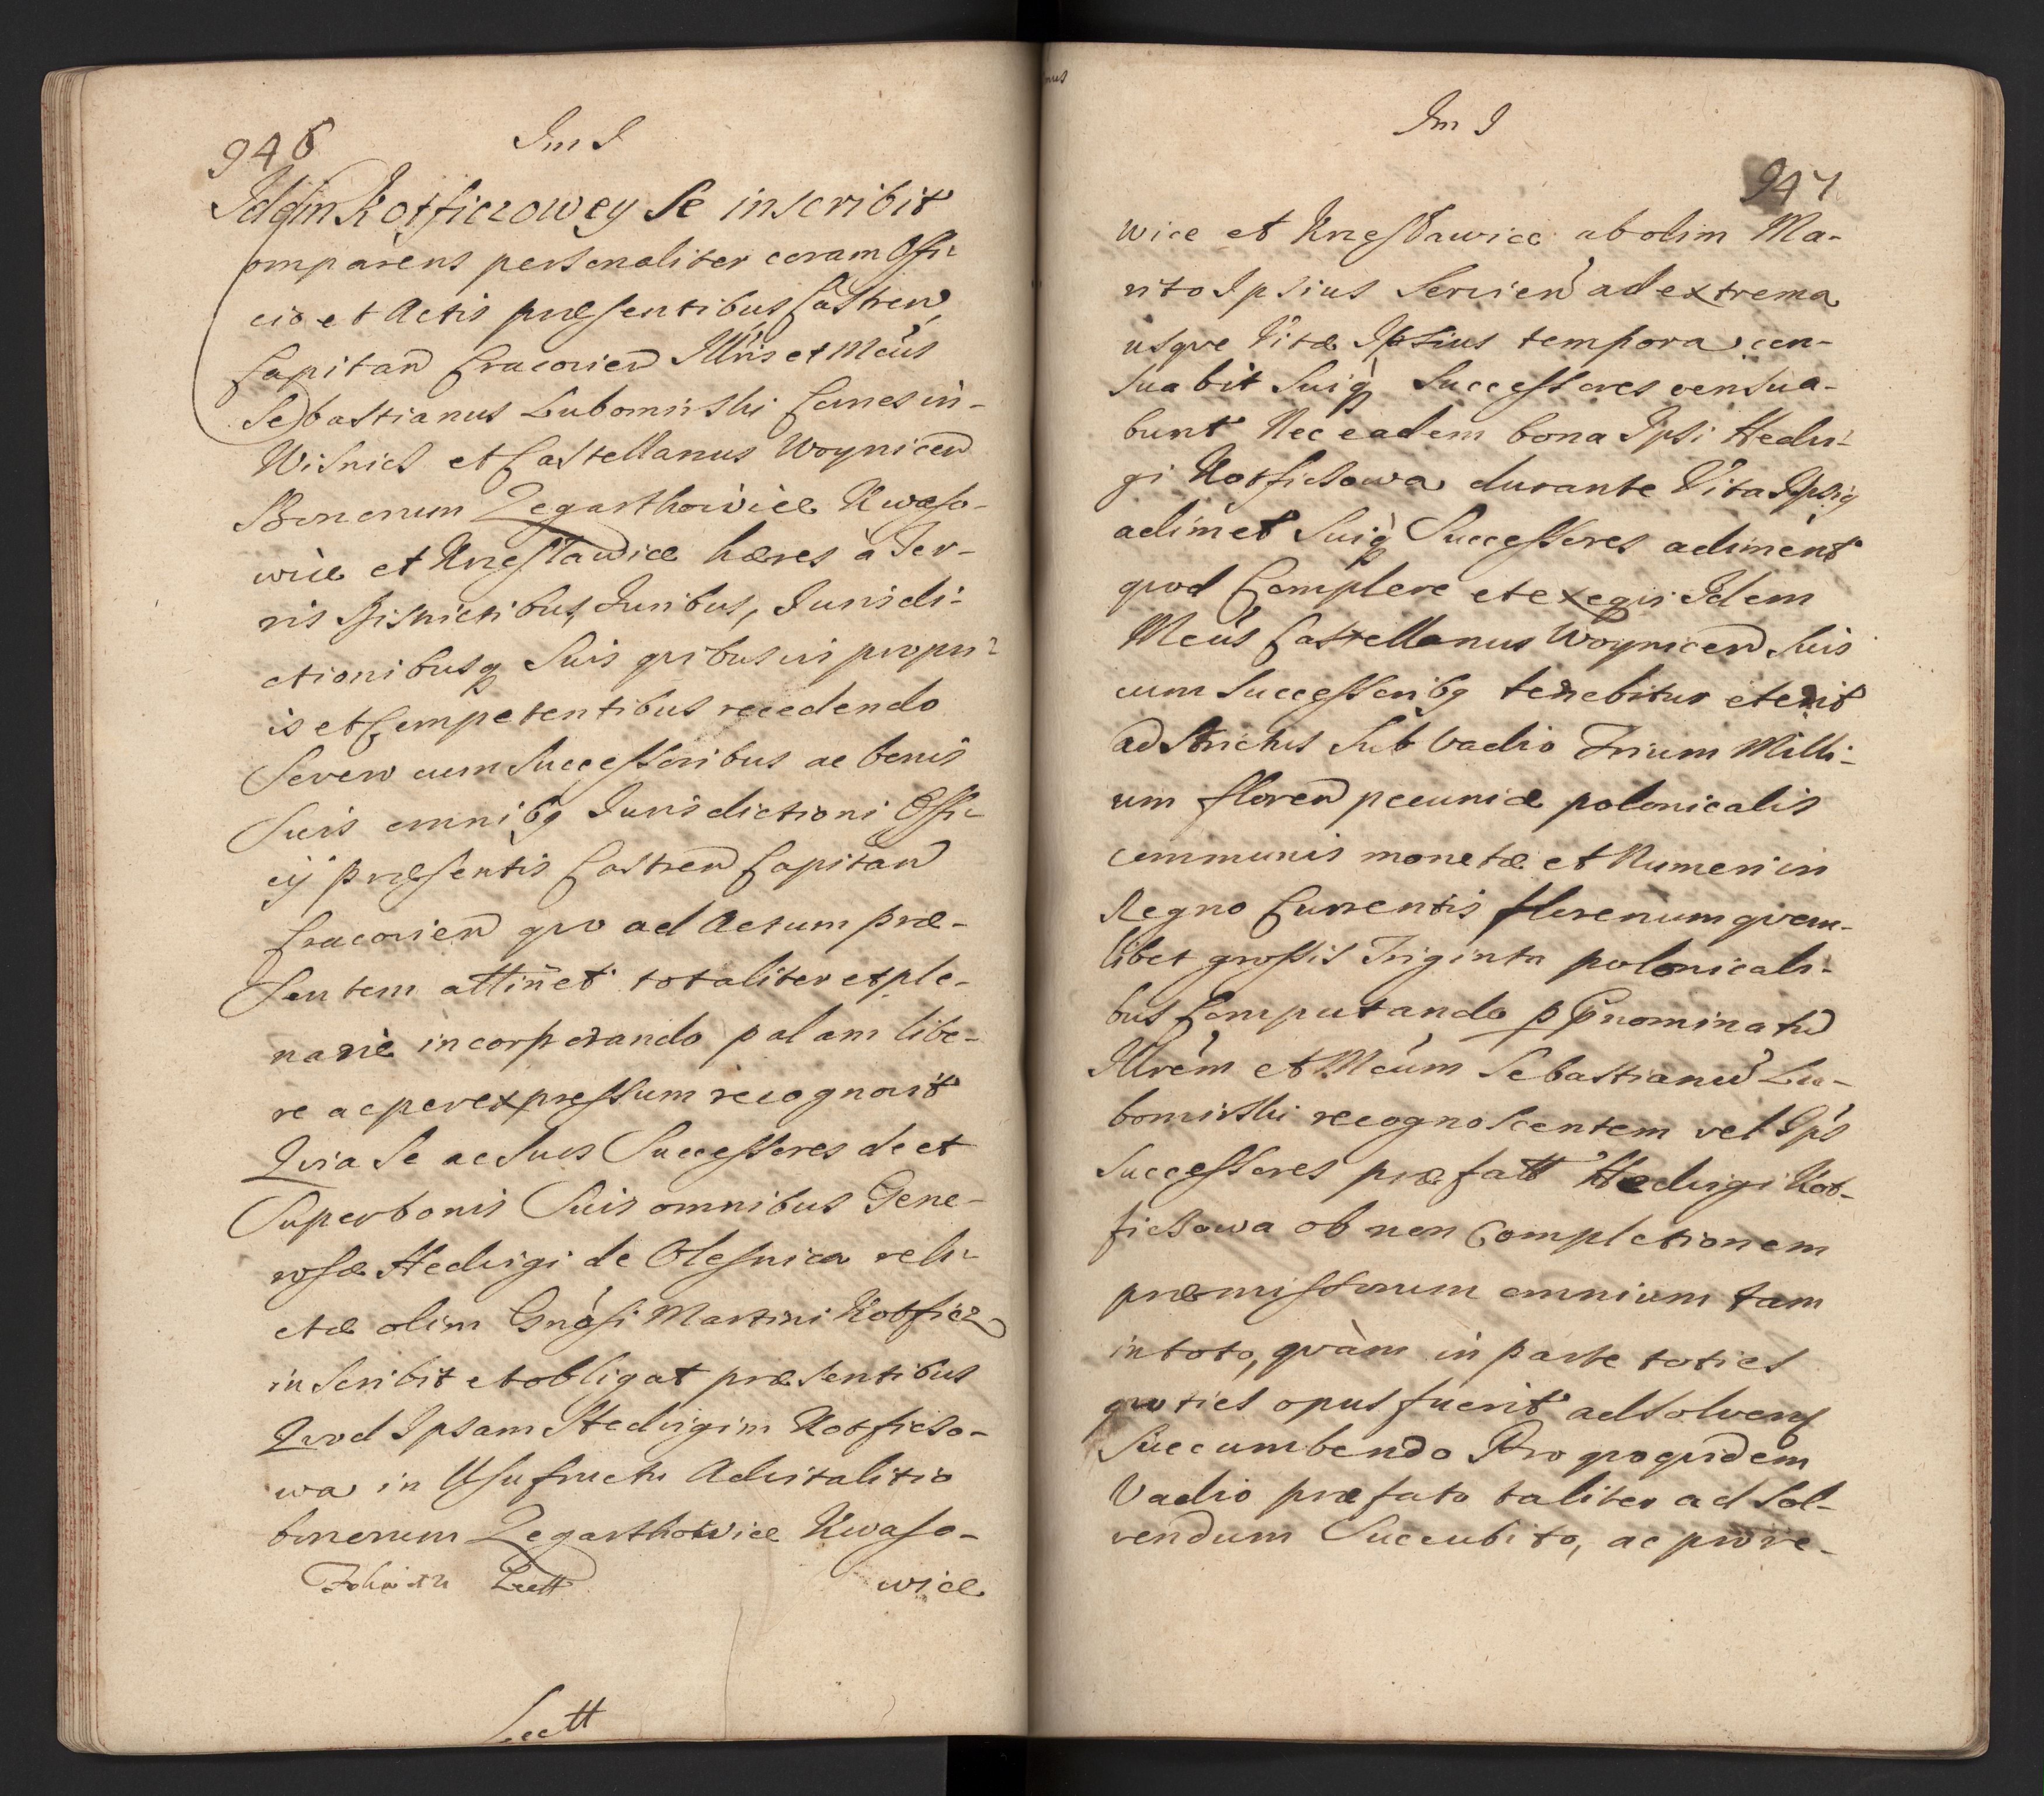 946
Im I
Iddm Kotficzowey se inscribit
Comparens personaliter coram Offi-
cio et Actis præsentibus Castren
Capitan Cracovien Illris et Mcus
Sebastianus Lubomirski Comes in
Wisnicz et Castellanus Woynicen
Bonorum Zegarthowice Kwaso-
wice et Krzesławice hæres à Ter-
ris Districtibus, Juribus, Jurisdi-
ctionibusq Suis quibusvis propri-
is et Competentibus recedendo
Seven cum Successoribus ac bonis
Suis omnibq Jurisdictioni Offi-
cij præsentis Castren Capitan
Cracovien quo ad Actum præ-
sentem attinet totaliter et ple-
narie incorporando palam libe-
re ac per expressum recognovit
Quia Se ac Suos Successores de et
Super bonis Suis omnibus Gene-
rosæ Hedvigi de Olesnica reli-
ctæ olim Gnosi Martini Kotficz
inscribit et obligat præsentibus
Quod Ipsam Hedvigim Kotficzo-
wa in Usufructu Advitalitio
bonorum Zegarthowice Kwaso-
Lectt
wice
Lectt
Im I
947
wice et Krzesławice ab olim Ma-
rito Ipsius Servien ad extrema
usque Vitæ Ipsius tempora con-
suabit Suiq Successores consua-
bunt Nec eadem bona Ipsi Hedvi-
gi Kotficzowa durante Vita Ipsiq
adimet Suiq Successores adiment
quod Complere et exequi Idem
Mcus Castellanus Woynicen Suis
cum Successoribq tenebitur et erit
adstrictus Sub Vadio Trium Milli-
um floren pecuniæ polonicalis
communis monetæ et Numeri in
Regno Currentis florenum quem-
libet grossis Triginta polonicali-
bus Computando p Prnominatu
Illrem et Mcum Sebastianu Lu-
bomirski recognoscentem vel Ips
Successores præfatt Hedvigi Kot-
ficzowa ob non Completionem
præmissorum omnium tam
in toto, quàm in parte toties
quoties opus fuerit adsolveng
Succumbendo Pro quoquidem
Vadio præfato taliter ad sol-
vendum Succubito, ac pro re-